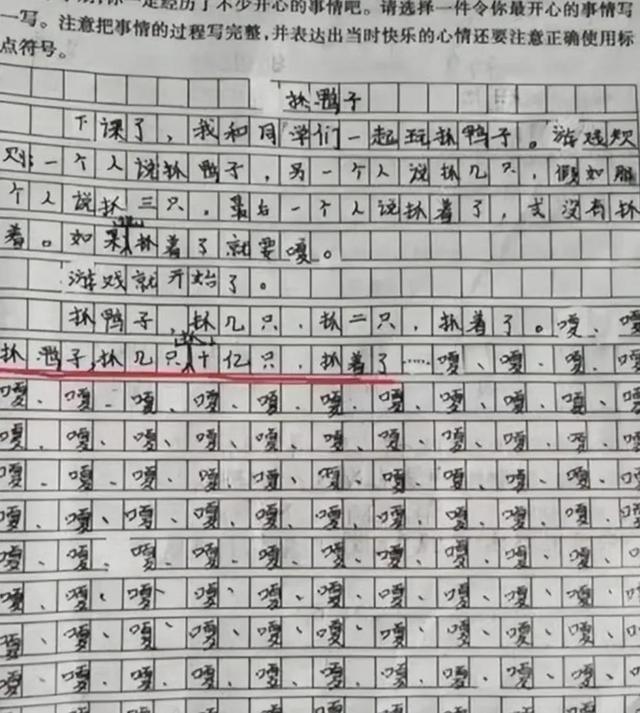 你一定经历了不少开心的事情吧。请选择一件令你最开心的事情写
一写。注意把事情的过程写完整,并表达出当时快乐的心情还要注意正确使用标
点符号。
抓鸭子
下课了,我和同学们一起玩抓鸭子。游戏规
则:一个人说抓鸭子,另一个人说抓几只,假如那
个人说抓三只,最后一个人说抓着了,或没有抓
着。如果抓着了就要嘎。
游戏就开始了。
抓鸭子,抓几只,抓二只,抓着了。嘎、嘎
抓鸭子,抓几只,抓十亿只,抓着了……嘎、嘎、嘎、嘎
嘎、嘎、嘎、嘎、嘎、嘎、嘎、嘎、嘎、嘎、嘎
嘎、嘎、嘎、嘎、嘎、嘎、嘎、嘎、嘎、嘎、嘎
嘎、嘎、嘎、嘎、嘎、嘎、嘎、嘎、嘎、嘎、嘎
嘎、嘎、嘎、嘎、嘎、嘎、嘎、嘎、嘎、嘎、嘎
嘎、嘎、嘎、嘎、嘎、嘎、嘎、嘎、嘎、嘎、嘎
嘎、嘎、嘎、嘎、嘎、嘎、嘎、嘎、嘎、嘎、嘎
嘎、嘎、嘎、嘎、嘎、嘎、嘎、嘎、嘎、嘎、嘎
嘎、嘎、嘎、嘎、嘎、嘎、嘎、嘎、嘎、嘎、嘎